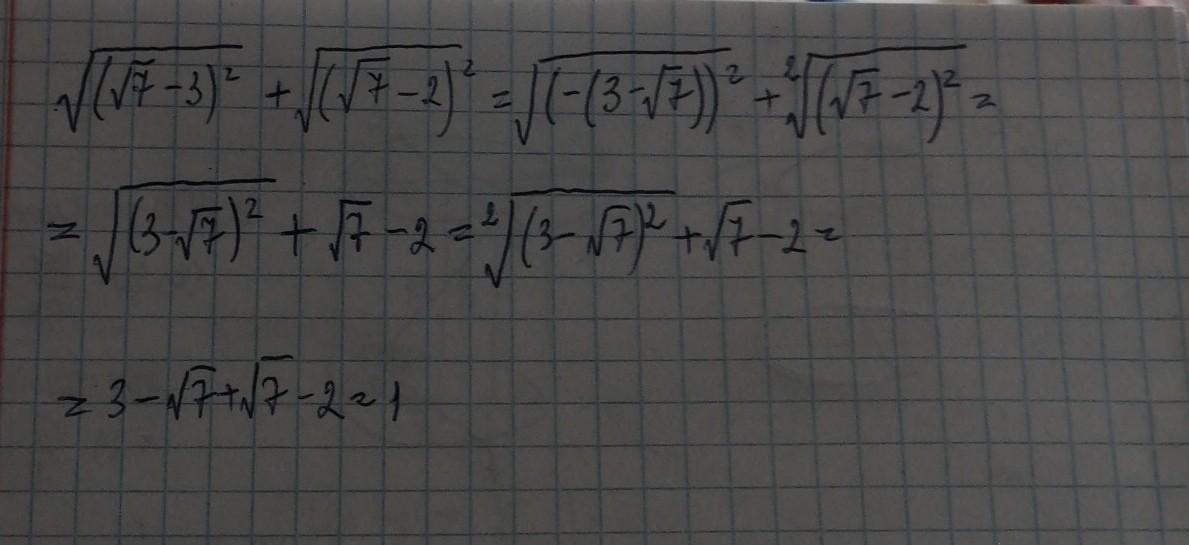 √(√7-3)² + √(√7-2)² = √(-(3-√7))² + ²√(√7-2)² =
= √(3-√7)² + √7-2 = ²√(3-√7)² + √7-2 =
= 3-√7+√7-2=1